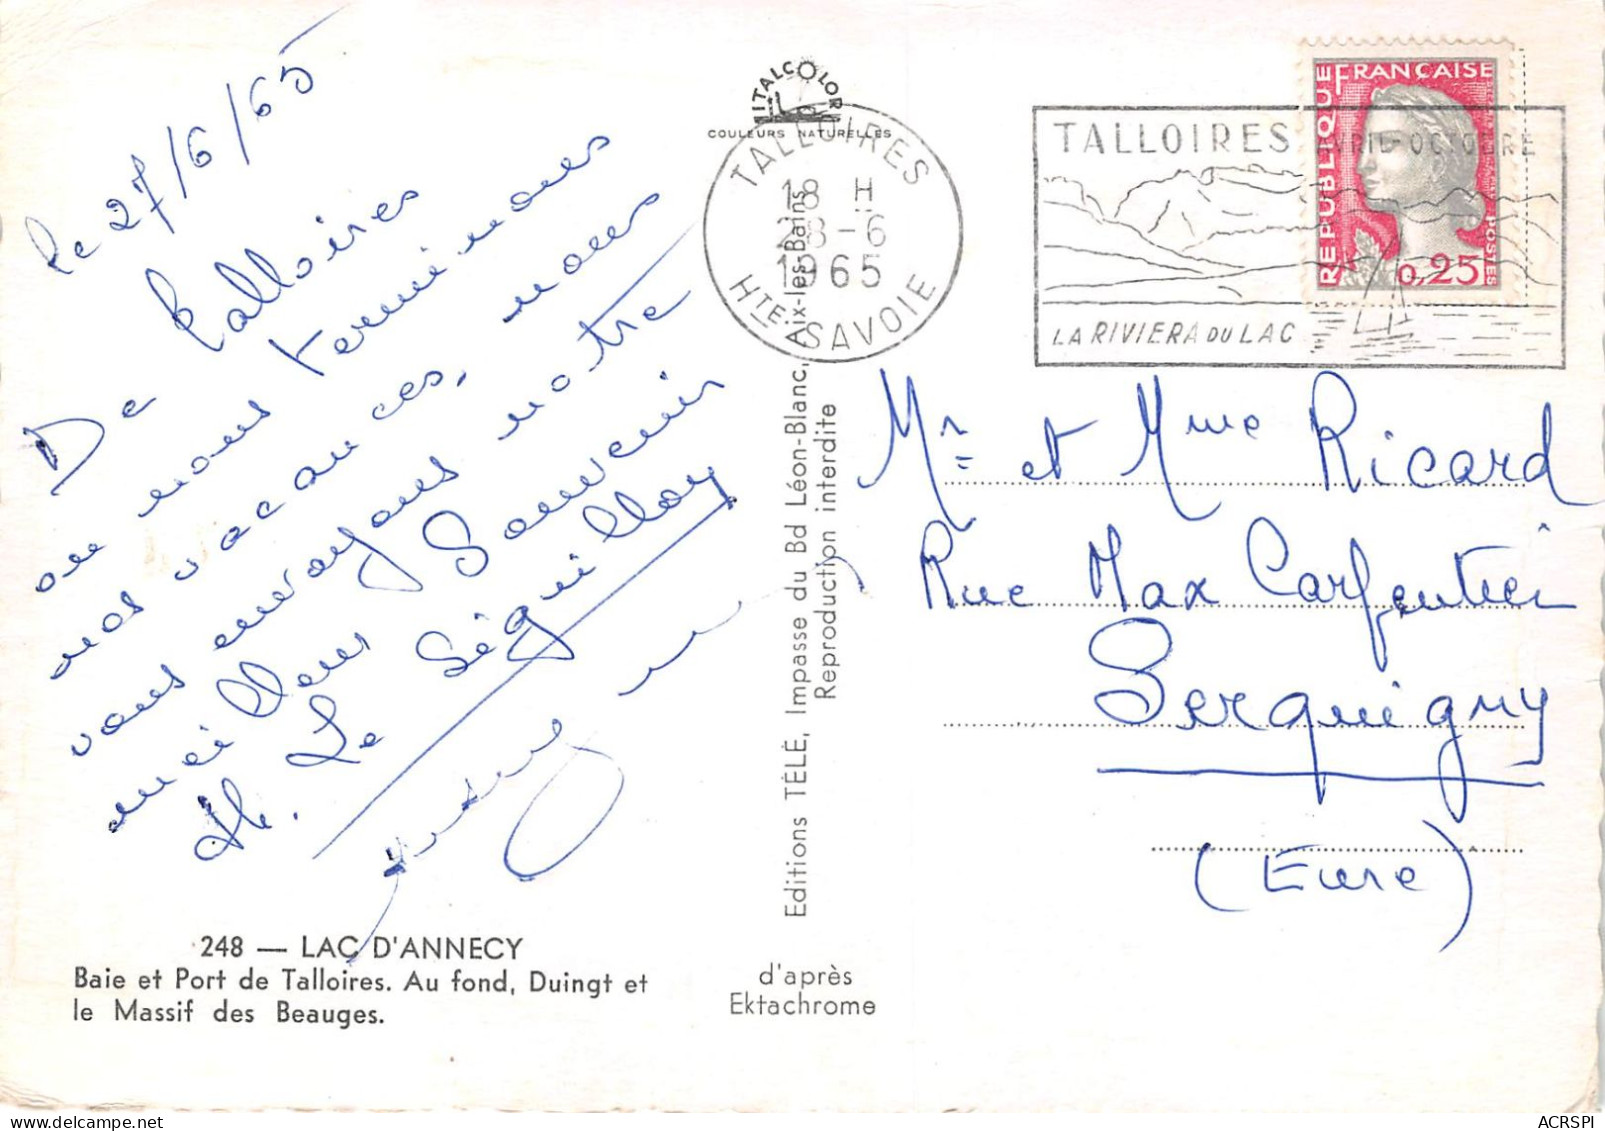 le 27/6/65
De Talloires
où nous terminons
nos vacances, nous
vous envoyons notre
meilleur Souvenir
Le Séguillon
248 — LAC D'ANNECY
Baie et Port de Talloires. Au fond, Duingt et
le Massif des Beauges.
ITALCOLOR
COULEURS NATURELLES
Editions TÉLÉ, Impasse du Bd Léon-Blanc, Aix-les-Bains
Reproduction interdite
d'après
Ektachrome
TALLOIRES
18 H
28-6
1965
HTE SAVOIE
TALLOIRES AVRIL-OCTOBRE
LA RIVIERA DU LAC
REPUBLIQUE FRANÇAISE
POSTES
0,25
Mr et Mme Ricard
Rue Max Carpentier
Serquigny
(Eure)
ACRSPI